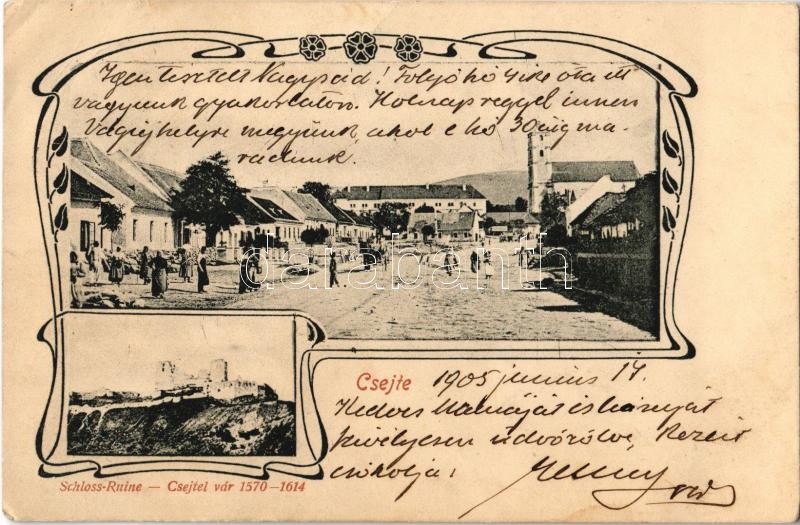 Igen tisztelt Nagysád! Folyó hó 4 ike óta itt
vagyunk gyakorlaton. Holnap reggel innen
Vágújhelyre megyünk, ahol e hó 30áig ma-
radunk.
darabanth
Csejte 1905 junius 14.
Kedves Mamáját és bátyját
szivélyesen üdvözölve, Kezeit
csókolja:
Schloss-Ruine — Csejtei vár 1570–1614